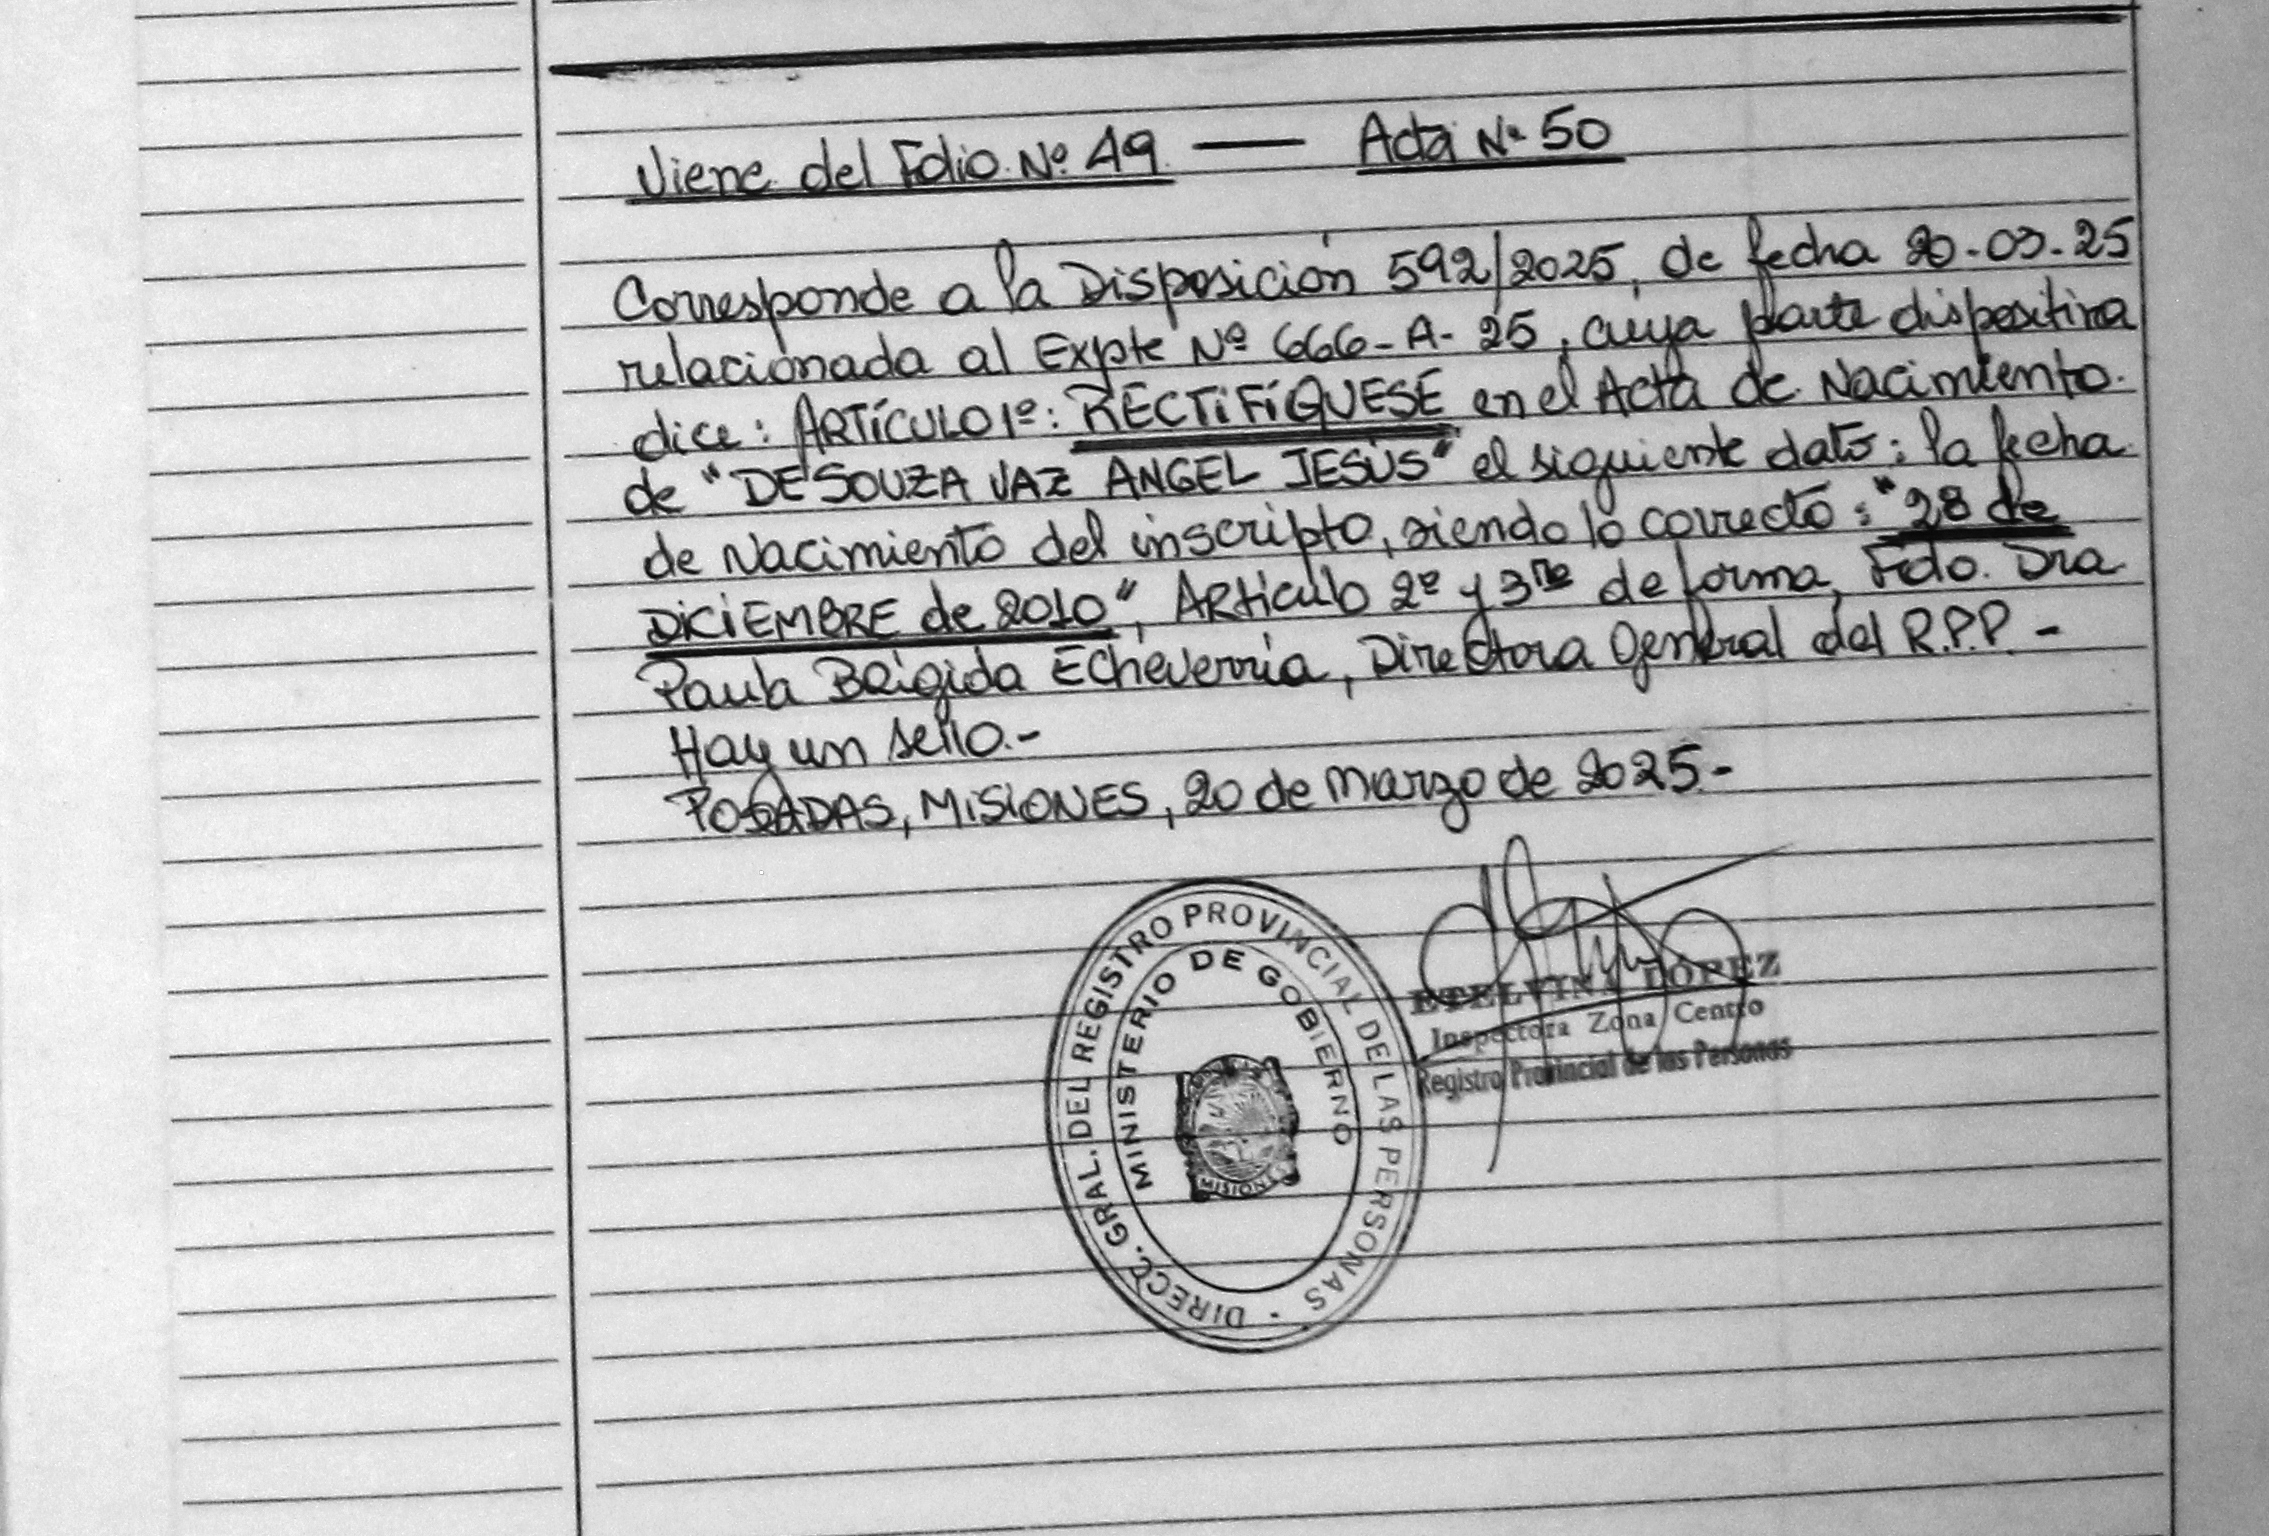 Viene del Folio Nº 49 — Acta Nº 50
Corresponde a la Disposición 592/2025, de fecha 20-03-25
relacionada al Expte Nº 666-A-25, cuya parte dispositiva
dice: ARTÍCULO 1º: RECTIFÍQUESE en el Acta de Nacimiento.
de "DE SOUZA VAZ ANGEL JESÚS" el siguiente dato: la fecha
de Nacimiento del inscripto, siendo lo correcto: "28 de
DICIEMBRE de 2010", Artículo 2º y 3ro de forma, Fdo. Dra.
Paula Brígida Echeverría, Directora General del R.P.P. -
Hay un sello.-
POSADAS, MISIONES, 20 de Marzo de 2025.-
DIRECC. GRAL. DEL REGISTRO PROVINCIAL DE LAS PERSONAS
MINISTERIO DE GOBIERNO
MISIONES
ETELVINA LOPEZ
Inspectora Zona Centro
Registro Provincial de las Personas